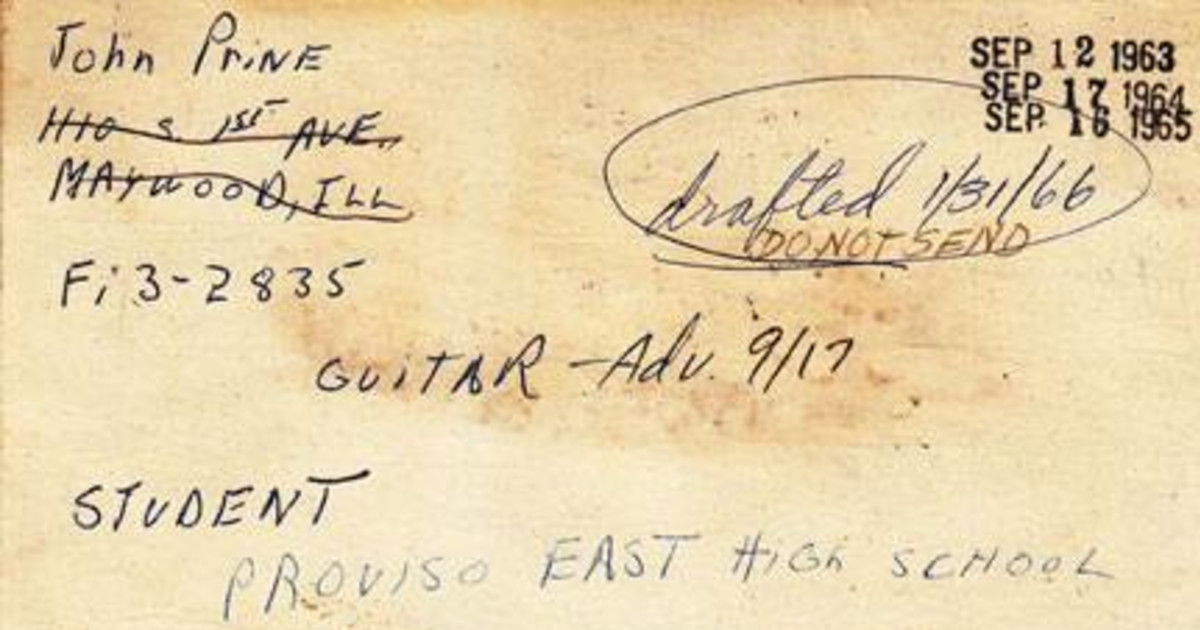 John Prine
SEP 12 1963
SEP 17 1964
SEP 16 1965
1110 S 1ST AVE.
MAYWOOD, ILL
drafted 1/31/66
DO NOT SEND
Fi 3-2835
GUITAR - Adv. 9/17
STUDENT
PROVISO EAST HIGH SCHOOL